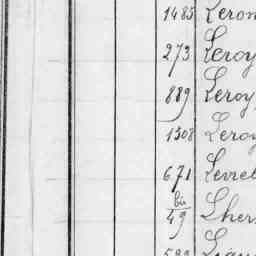 1485 Leron
273 Leroy
889 Leroy
1308 Leroy
671
bis
49 Lher